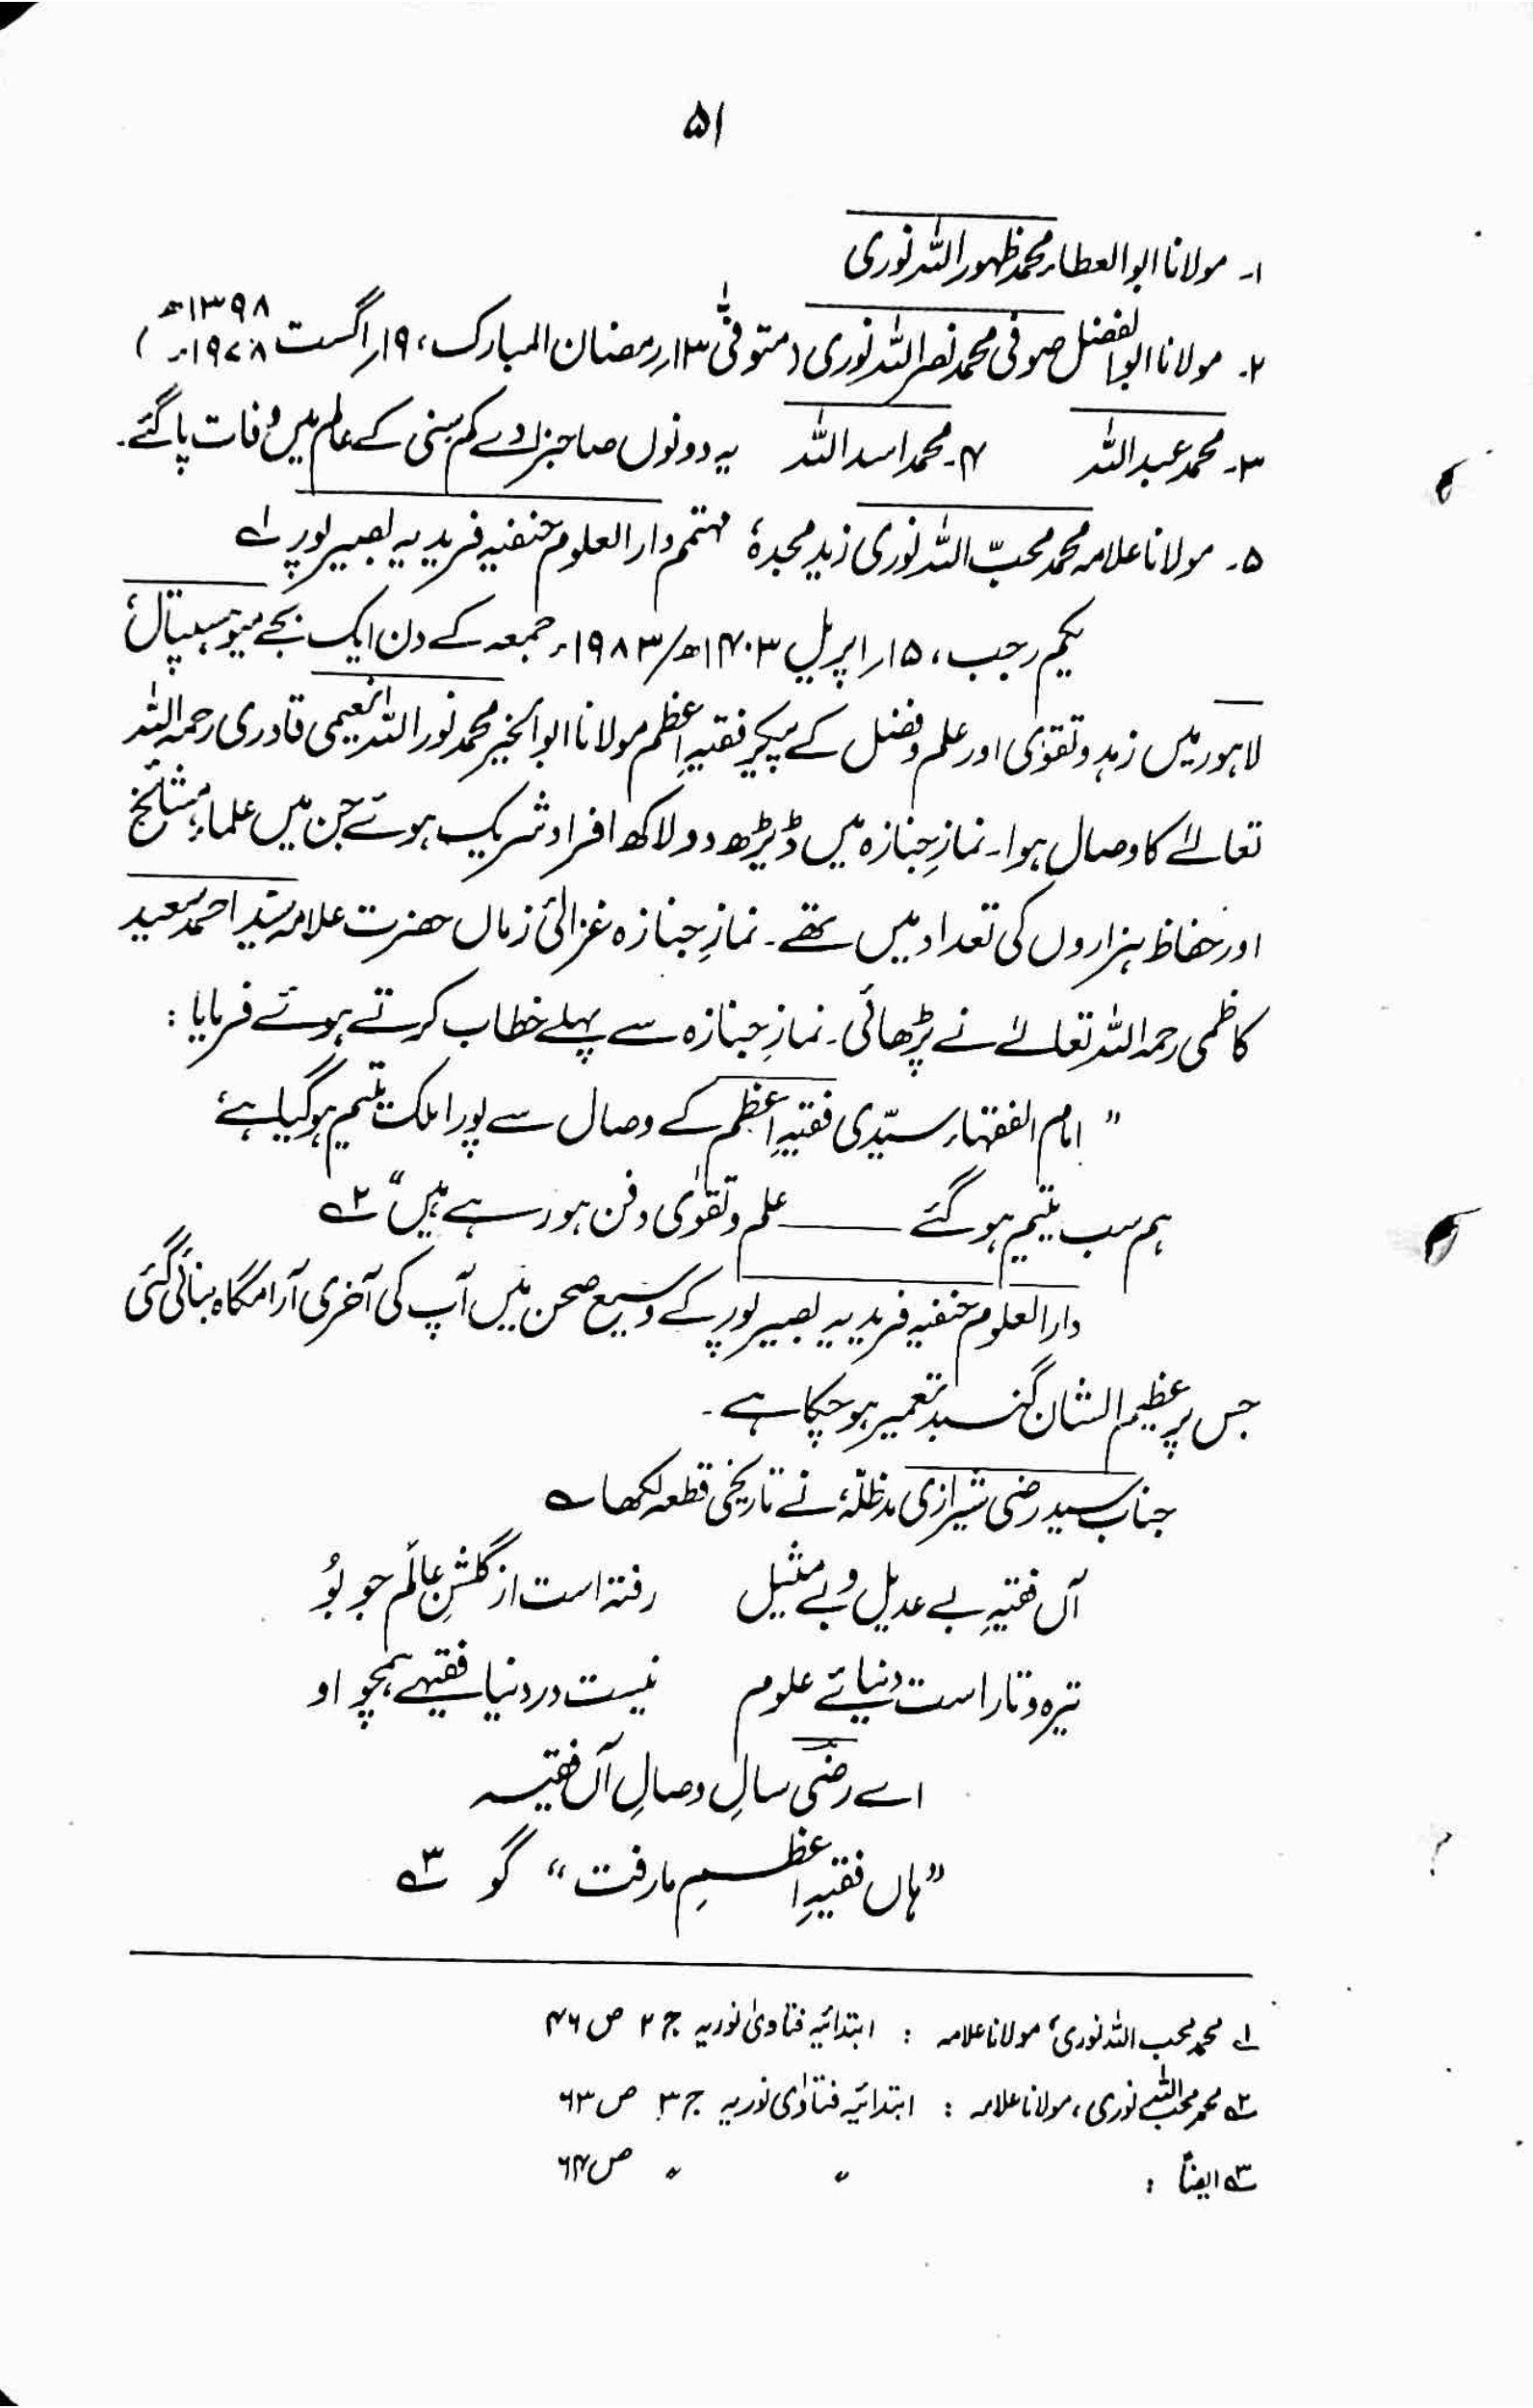 ۵۱
۱۔ مولانا ابوالعطاء محمد ظہور اللہ نوری
۲۔ مولانا ابوالفضل صوفی محمد نصر اللہ نوری (متوفیٰ ۱۳؍رمضان المبارک، ۱۹؍اگست ۱۳۹۸ھ / ۱۹۷۸ء)
۳۔ محمد عبد اللہ ۴۔ محمد اسد اللہ یہ دونوں صاحبزادے کم سنی کے عالم میں وفات پا گئے۔
۵۔ مولانا علامہ محمد محبّ اللہ نوری زید مجدہٗ مہتمم دارالعلوم حنفیہ فریدیہ بصیر پور ؂۱
یکم رجب، ۱۵؍اپریل ۱۴۰۳ھ/۱۹۸۳ء جمعہ کے دن ایک بجے میو ہسپتال،
لاہور میں زہد و تقوٰی اور علم و فضل کے پیکر فقیہِ اعظم مولانا ابوالخیر محمد نور اللہ النعیمی قادری رحمہ اللہ
تعالےٰ کا وصال ہوا۔ نمازِ جنازہ میں ڈیڑھ دو لاکھ افراد شریک ہوئے جن میں علماء، مشائخ
اور حفاظ ہزاروں کی تعداد میں تھے۔ نمازِ جنازہ غزالئ زماں حضرت علامہ سید احمد سعید
کاظمی رحمہ اللہ تعالےٰ نے پڑھائی۔ نمازِ جنازہ سے پہلے خطاب کرتے ہوئے فرمایا :
” امام الفقہاء سیّدی فقیہِ اعظم کے وصال سے پورا ملک یتیم ہو گیا ہے،
ہم سب یتیم ہو گئے ——— علم و تقوٰی دفن ہو رہے ہیں“ ؂۲
دارالعلوم حنفیہ فریدیہ بصیر پور کے وسیع صحن میں آپ کی آخری آرامگاہ بنائی گئی
جس پر عظیم الشان گنبد تعمیر ہو چکا ہے۔
جناب سید رضی شیرازی مدظلہٗ، نے تاریخی قطعہ لکھا ؎
آں فقیہِ بے عدیل و بے مثیل رفتہ است از گلشنِ عالَم چو بُو
تیرہ و تار است دنیائے علوم نیست در دنیا فقیہے ہمچو او
اے رضی سالِ وصالِ آں فقیہ
”ہاں فقیہِ اعظمِ ما رفت“ گو ؂۳
؂۱ محمد محب اللہ نوری، مولانا علامہ : ابتدائیہ فتاویٰ نوریہ ج ۲ ص ۴۶
؂۲ محمد محب اللہ نوری، مولانا علامہ : ابتدائیہ فتاوٰی نوریہ ج ۳ ص ۶۳
؂۳ ایضاً : 〃 〃 ص ۶۴